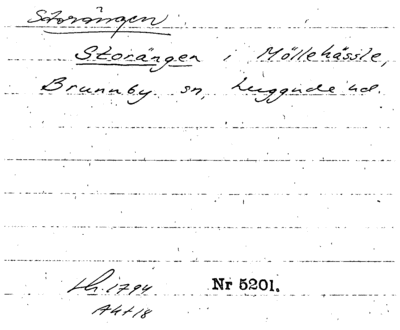 Storängen
Storängen i Möllehässle,
Brunnby sn, Luggude hd.
Lh. 1794 Nr 5201.
Akt 18